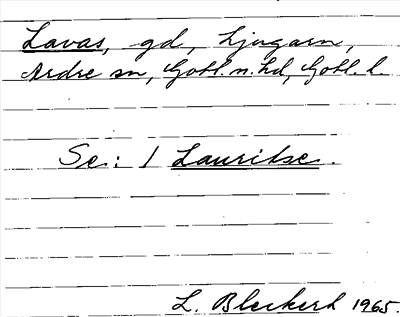 Lavas, gd, Ljugarn,
Ardre sn, Gotl. n. hd, Gotl. l.
Se: 1 Lauritse.
L. Bleckert 1965.